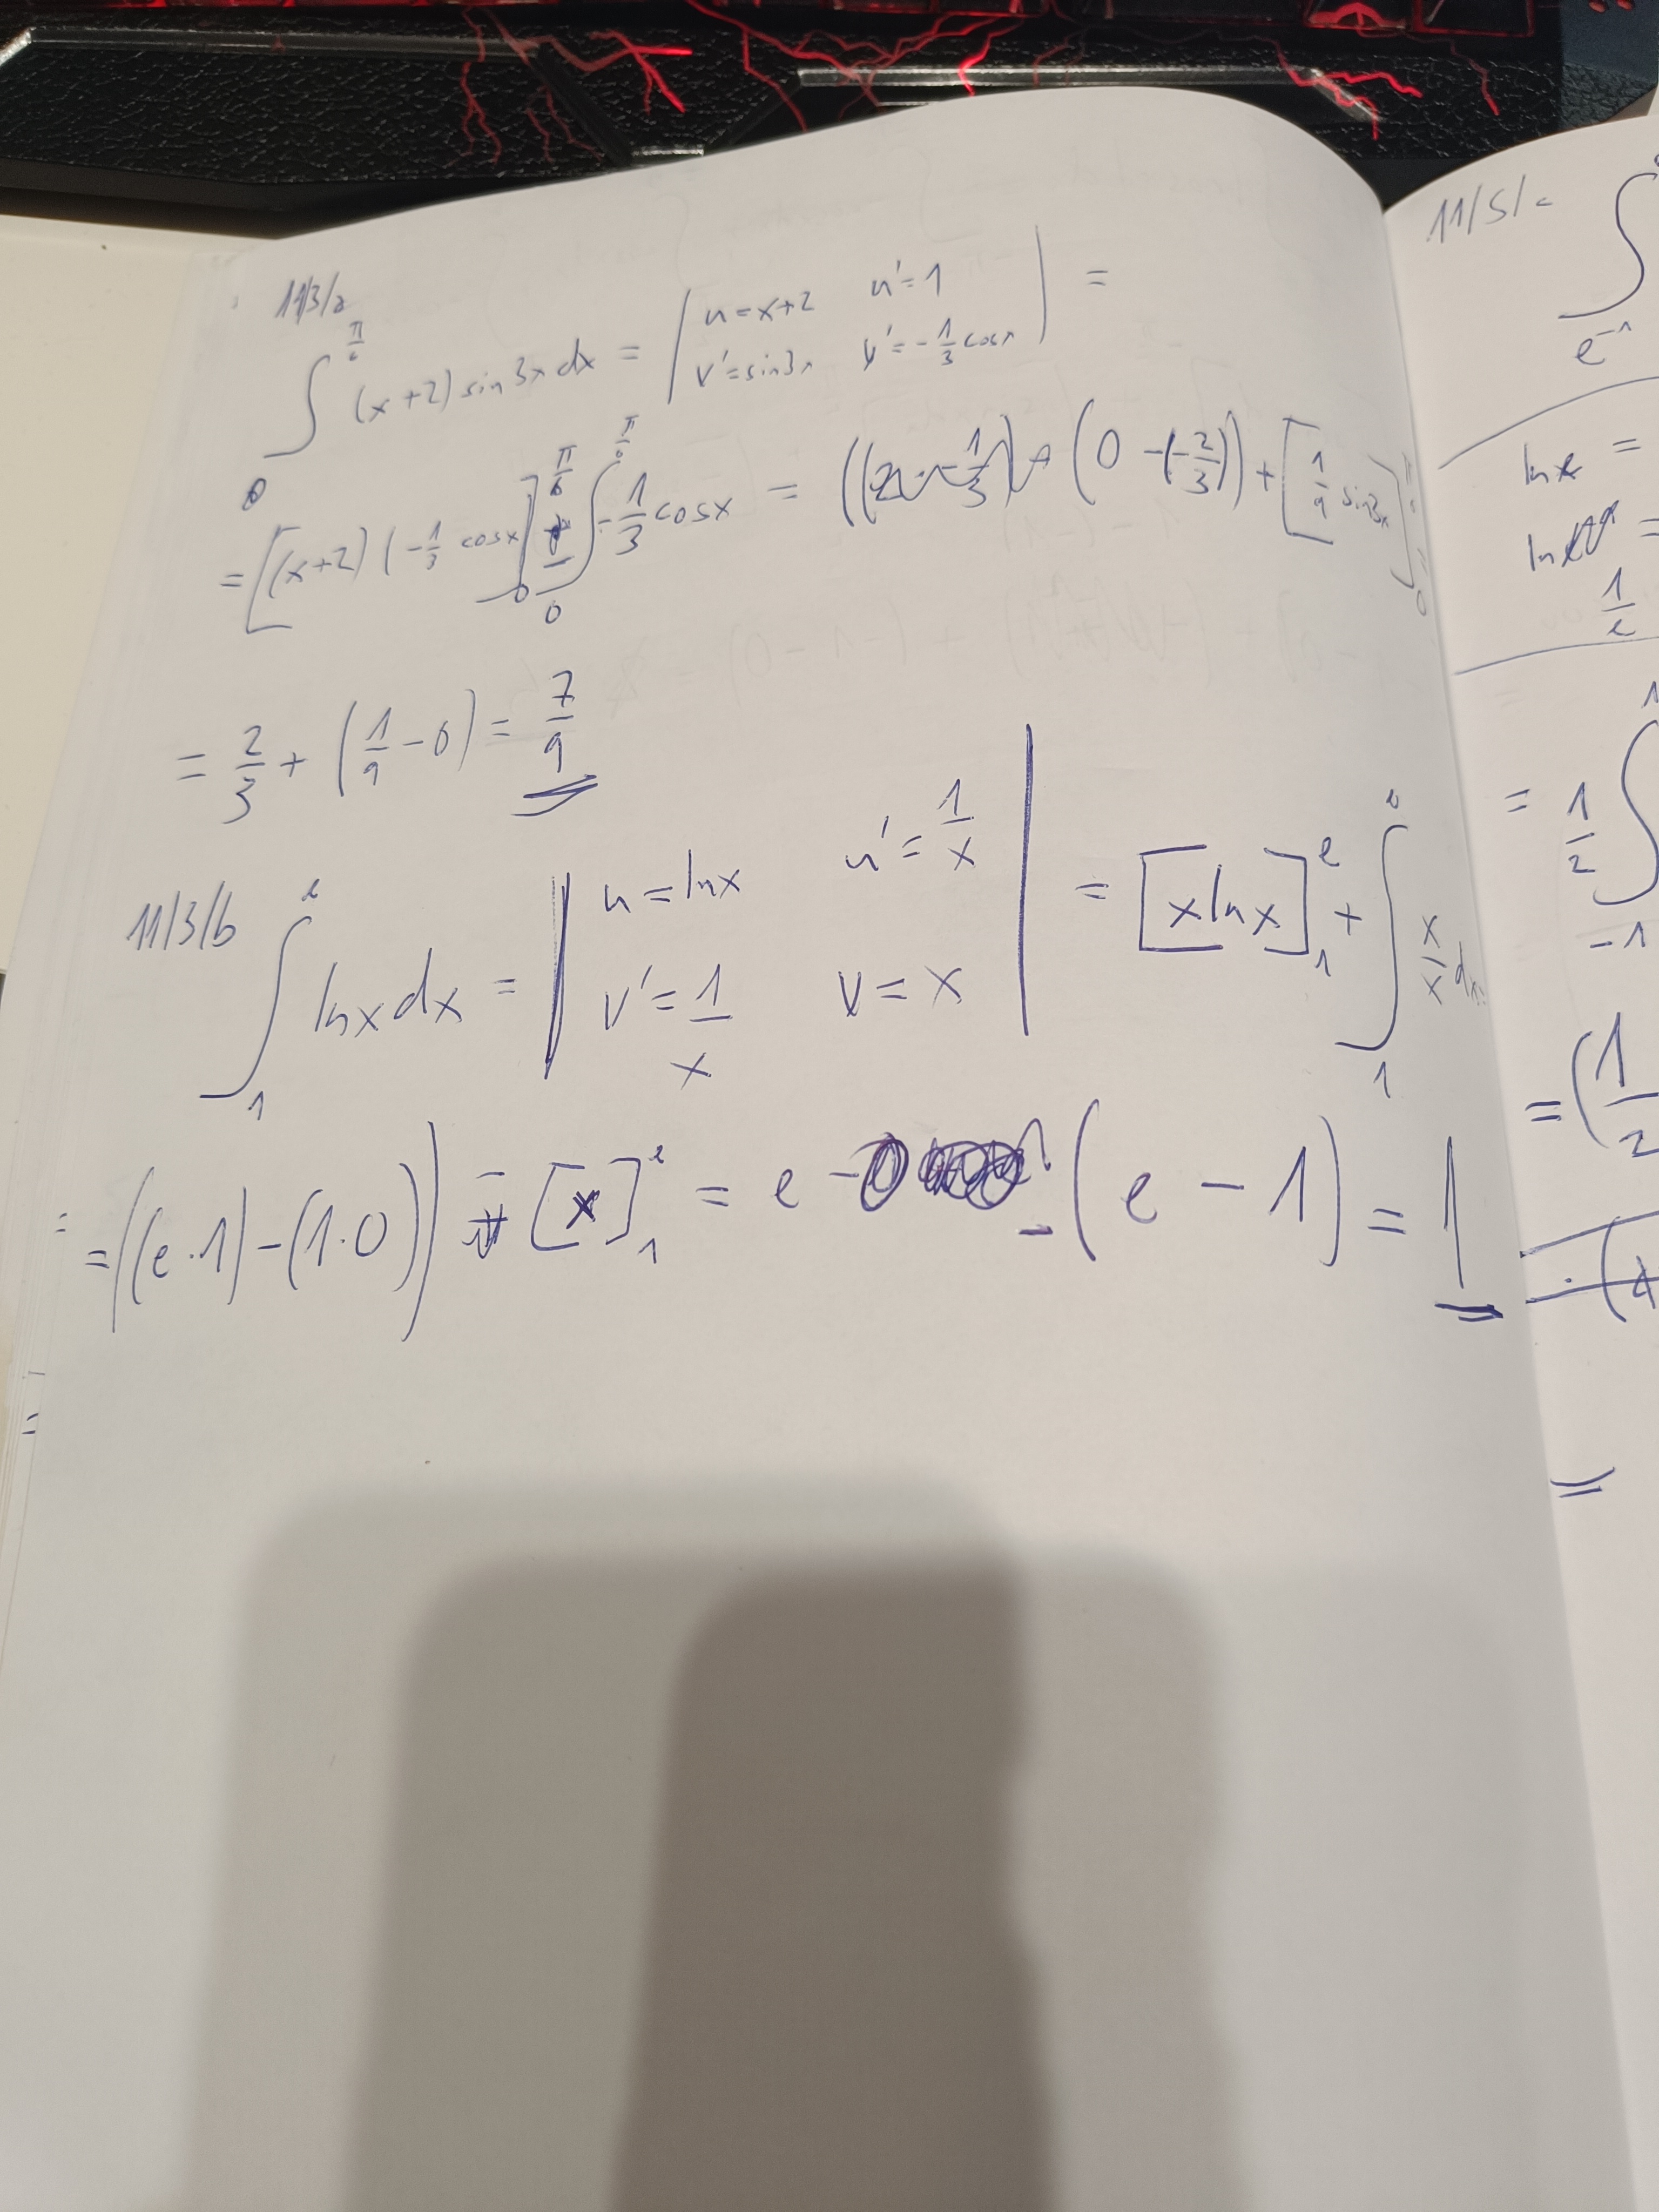 11/3/a
∫₀^(π/6) (x+2) sin3x dx = | u=x+2 u'=1 | =
| v'=sin3x v'=-1/3 cosx |
= [(x+2)(-1/3 cosx)]₀^(π/6) - ∫₀^(π/6) -1/3 cosx = (0-(-2/3)) + [1/9 sin3x]₀
= 2/3 + (1/9 - 0) = 7/9
11/3/b ∫₁^e lnx dx = | u=lnx u'=1/x | = [x lnx]₁^e + ∫₁^e x/x dx
| v'=1/x v=x |
= ((e·1)-(1·0)) - [x]₁^e = e - (e-1) = 1
11/5/
e⁻¹
ln =
ln =
1/e
= 1/2 ∫₋₁
= (1/2
=